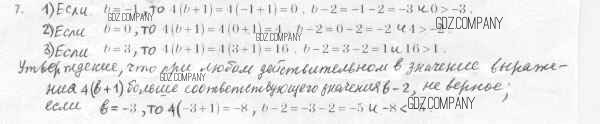 7. 1) Если b = -1, то 4(b+1) = 4(-1+1) = 0, b-2 = -1-2 = -3 и 0 > -3.
GDZ.COMPANY
2) Если b = 0, то 4(b+1) = 4(0+1) = 4, b-2 = 0-2 = -2 и 4 > -2.
GDZ.COMPANY
GDZ.COMPANY
3) Если b = 3, то 4(b+1) = 4(3+1) = 16, b-2 = 3-2 = 1 и 16 > 1.
Утверждение, что при любом действительном в значение выраже-
GDZ.COMPANY
ния 4(b+1) больше соответствующего значения в-2, не верное;
если в = -3, то 4(-3+1) = -8, b-2 = -3-2 = -5 и -8 <
GDZ.COMPANY
GDZ.COMPANY